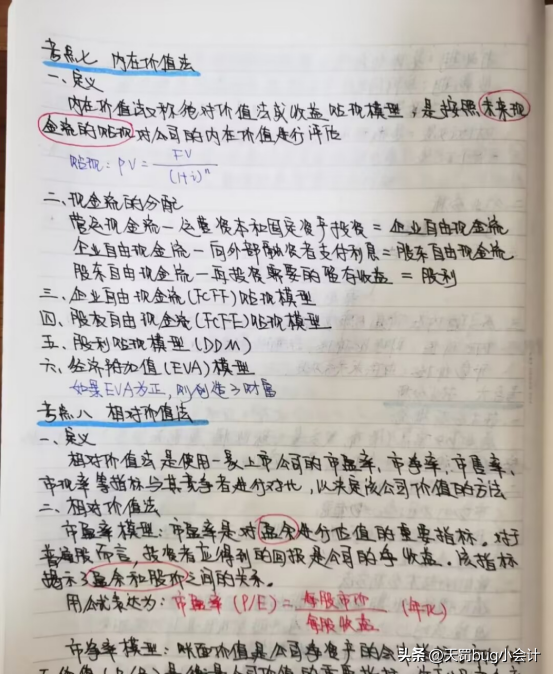 考点七 内在价值法
一、定义
内在价值法又称绝对价值法或收益贴现模型，是按照未来现
金流的贴现对公司的内在价值进行评估
贴现：PV = FV
(1+i)^n
二、现金流的分配
营运现金流－运营资本和固定资产投资＝企业自由现金流
企业自由现金流－向外部融资者支付利息＝股东自由现金流
股东自由现金流－再投资需要的留存收益＝股利
三、企业自由现金流(FCFF)贴现模型
四、股权自由现金流(FCFE)贴现模型
五、股利贴现模型(DDM)
六、经济附加值(EVA)模型
如果EVA为正，则创造了财富
考点八 相对价值法
一、定义
相对价值法是使用一家上市公司的市盈率、市净率、市售率、
市现率等指标与其竞争者进行对比，以决定该公司价值的方法
二、相对价值法
市盈率模型：市盈率是对盈余进行估值的重要指标。对于
普通股而言，投资者应得到的回报是公司的净收益。该指标
揭示了盈余和股价之间的关系。
用公式表达为：市盈率(P/E)＝每股市价 (年化)
每股收益
市净率模型：账面价值是公司净资产的会计
头条 @天罚bug小会计